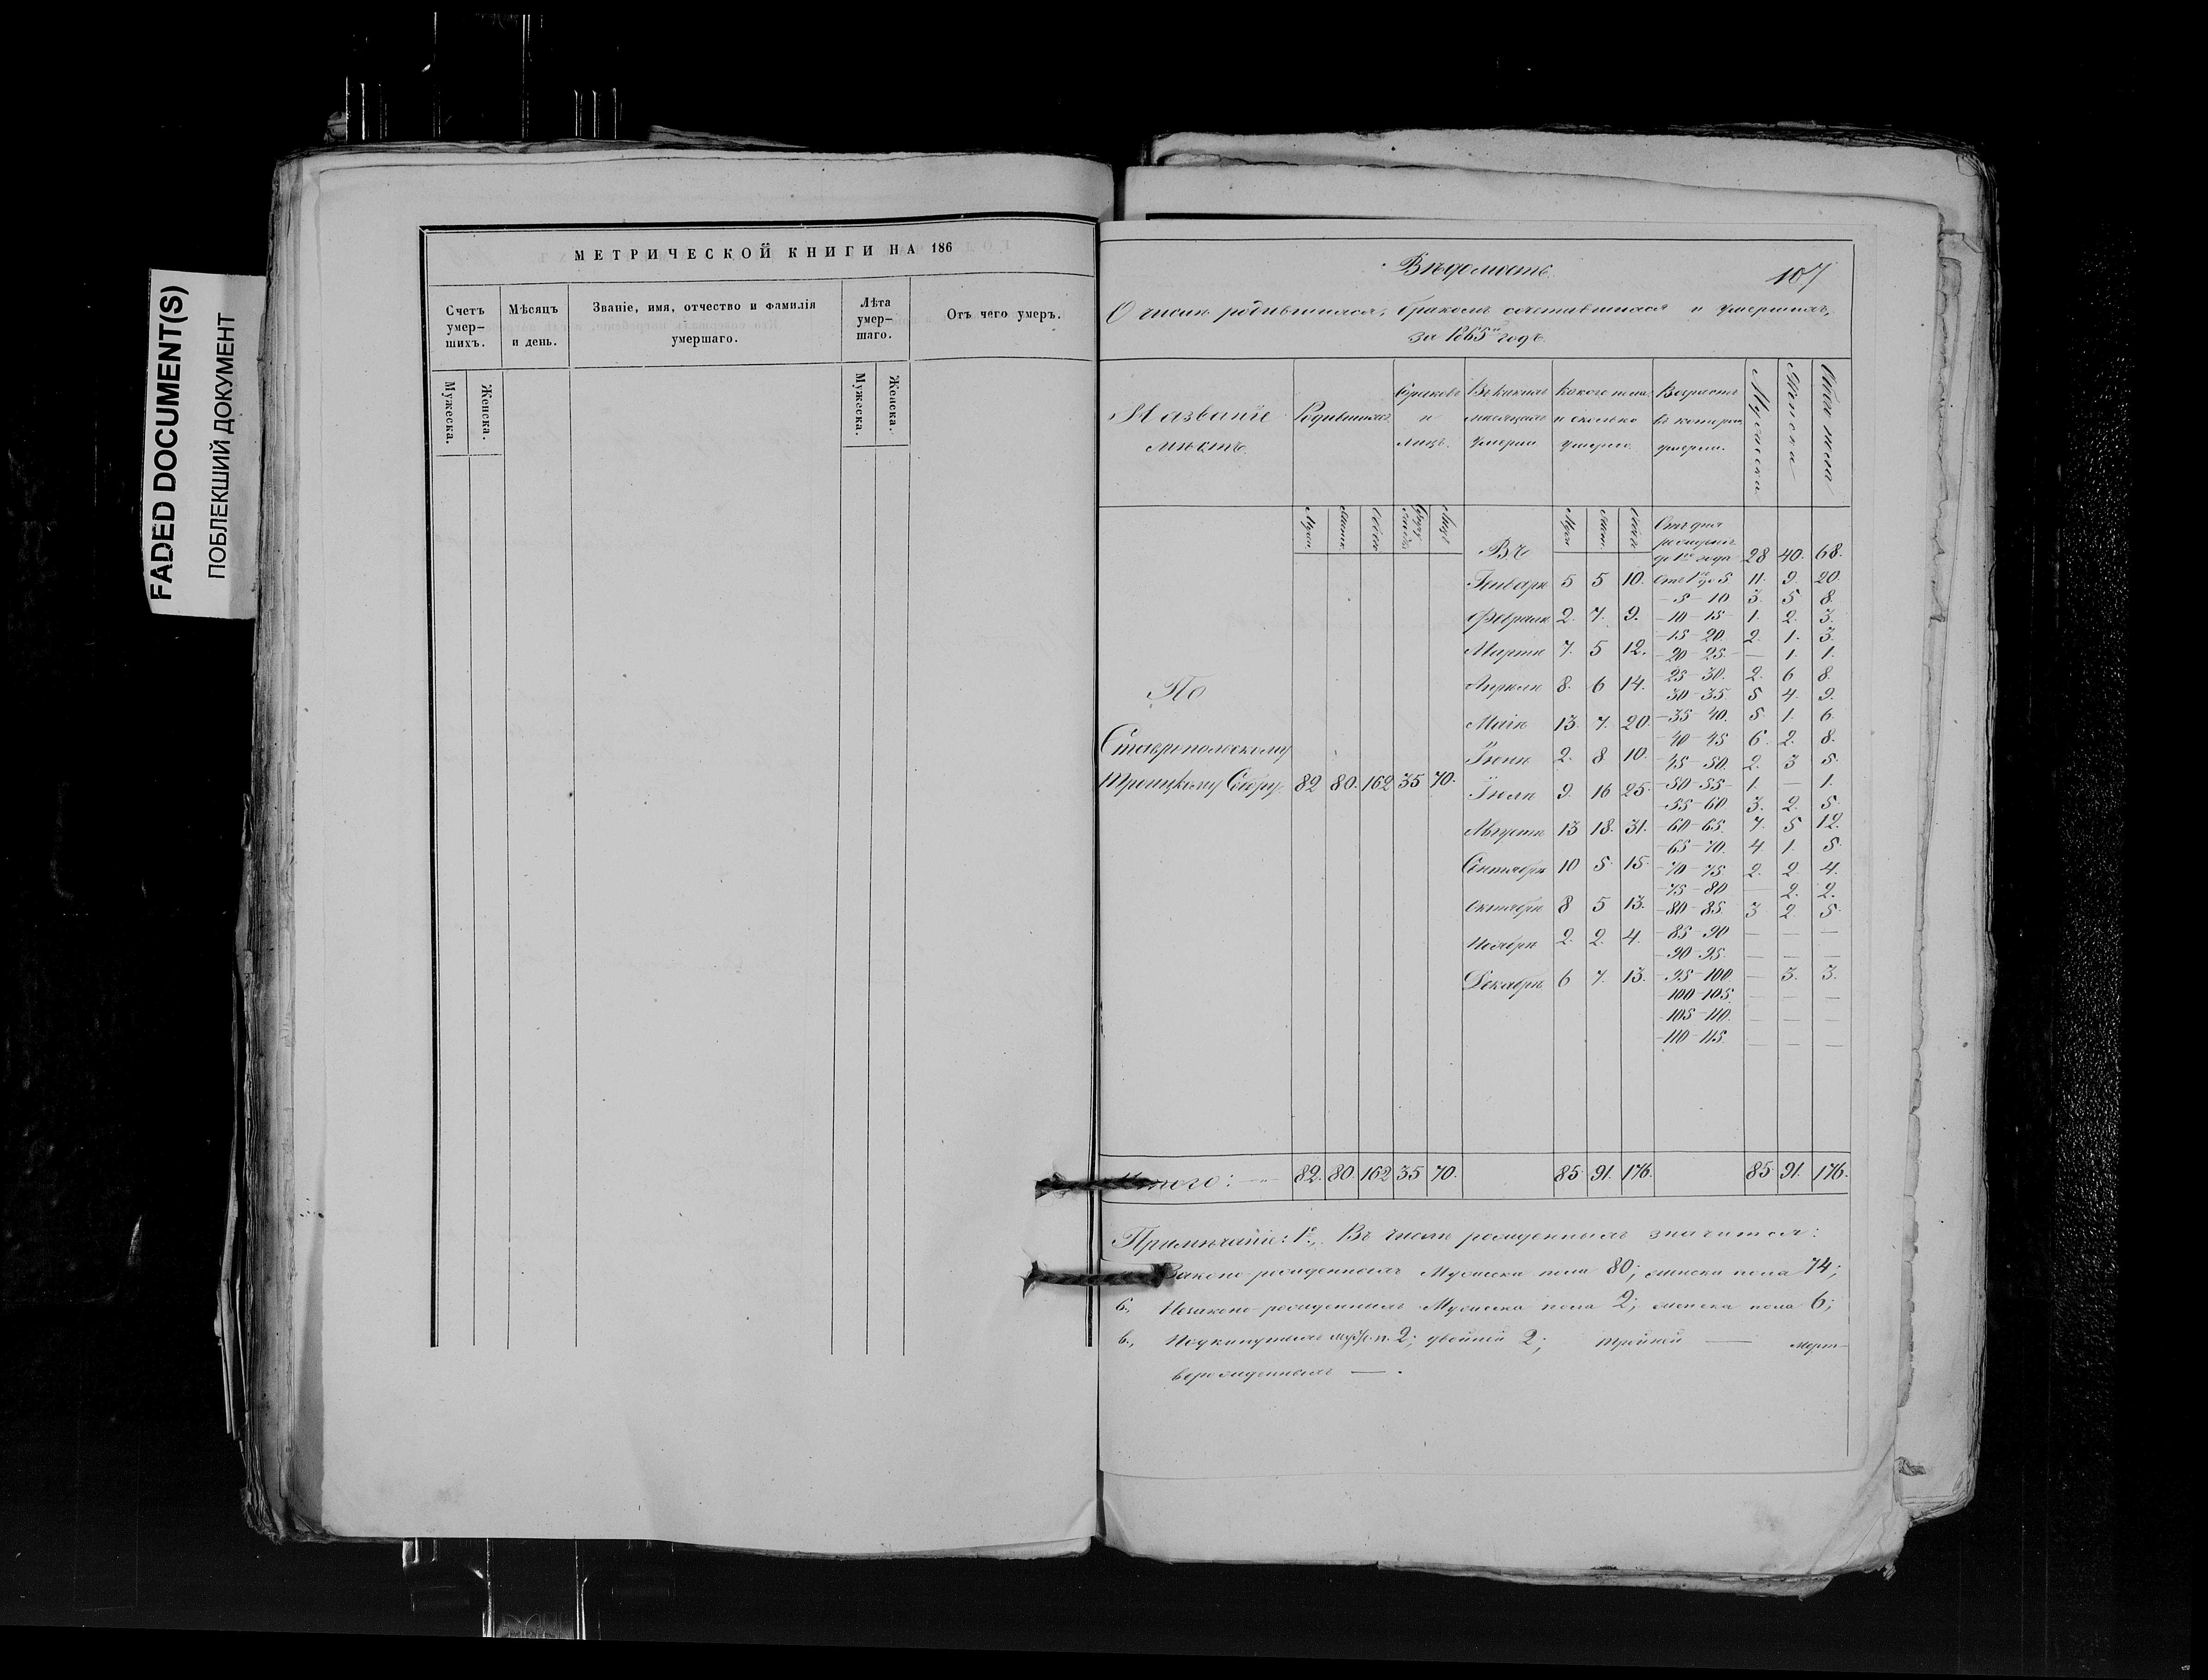 FADED DOCUMENT(S)
ПОБЛЕКШИЙ ДОКУМЕНТ
МЕТРИЧЕСКОЙ КНИГИ НА 186
Счетъ умер-шихъ. Мѣсяцъ и день. Званіе, имя, отчество и фамилія умершаго. Лѣта умер-шаго. Отъ чего умеръ.
Мужеска. Женска. Мужеска. Женска.
Вѣдомость
107
О числѣ родившихся, бракомъ сочетавшихся и умершихъ,
за 1865й годъ.
Названіе мѣстъ. Родившихся. Браковъ и лицъ. Въ какихъ мѣсяцахъ умерли Какого пола и сколько умерло. Возрастъ въ которомъ умерли. Мужеска Женска Обоего пола
По
Ставропольскому
Троицкому Собору. 82 80. 162 35 70.
Въ
Январѣ 5 5 10.
Февралѣ 2. 7. 9.
Мартѣ 7. 5 12.
Апрѣлѣ 8. 6 14.
Маіѣ 13. 7. 20.
Іюнѣ 2. 8 10.
Іюлѣ 9. 16 25.
Августѣ 13 18. 31.
Сентябрѣ 10 5. 15.
Октябрѣ 8 5 13.
Ноябрѣ 2. 2. 4.
Декабрѣ 6 7. 13.
Отъ дня
рожденія
до 1го года 28 40. 68.
Отъ 1го до 5. 11. 9. 20.
— 5 — 10 3. 5 8.
— 10 — 15 — 1. 2. 3.
— 15 — 20 2. 1. 3.
— 20 — 25. — — 1. 1.
— 25 — 30. 2. 6 8.
— 30 — 35. 5 4. 9.
— 35 — 40. 5. 1. 6.
— 40 — 45 6. 2. 8.
— 45 — 50. 2. 3 5.
— 50 — 55 — 1. — 1.
— 55 — 60 3. 2. 5.
— 60 — 65. 7. 5 12.
— 65 — 70. 4. 1. 5.
— 70 — 75. 2. 2 4.
— 75 — 80 — 2. 2.
— 80 — 85. 3 2. 5.
— 85 — 90 — — —
— 90 — 95. — — —
— 95 — 100 — 3. 3.
— 100 — 105. — — —
— 105 — 110. — — —
— 110 — 115. — — —
Итого: — 82. 80. 162 35 70. 85 91. 176. 85 91. 176.
Примѣчаніе: 1е., Въ числѣ рожденныхъ значится:
Законно-рожденныхъ мужеска пола 80; женска пола 74;
б., Незаконно-рожденныхъ мужеска пола 2; женска пола 6;
в., Подкинутыхъ муж. п. 2; двойней 2; тройней — мерт-
ворожденныхъ — .